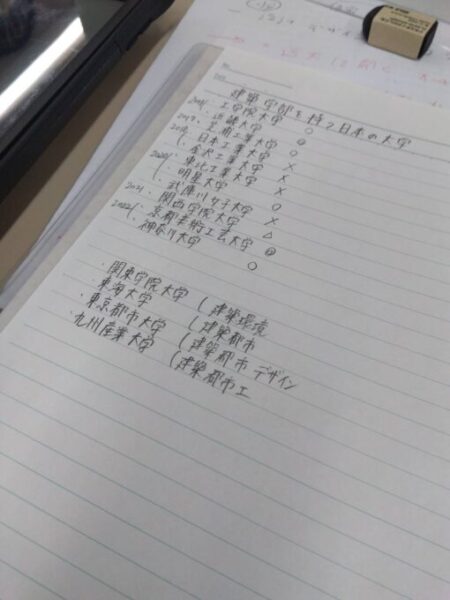 建築学部を持つ日本の大学
2011. 工学院大学 ○
近畿大学
2017. 芝浦工業大学
2018. 日本工業大学 ○
金沢工業大学 ×
2020. 東北工業大学 ×
明星大学 ×
武庫川女子大学
2021. 関西学院大学 ×
2022. 京都美術工芸大学 △
神奈川大学
○
・関東学院大学 (建築環境
・東海大学 (建築都市
・東京都市大学 (建築都市デザイン
・九州産業大学 (建築都市工